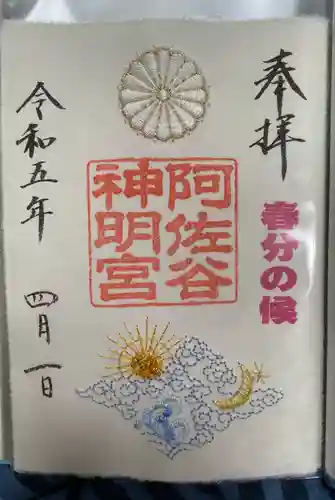 奉拝
春分の候
阿佐谷
神明宮
令和五年
四月一日